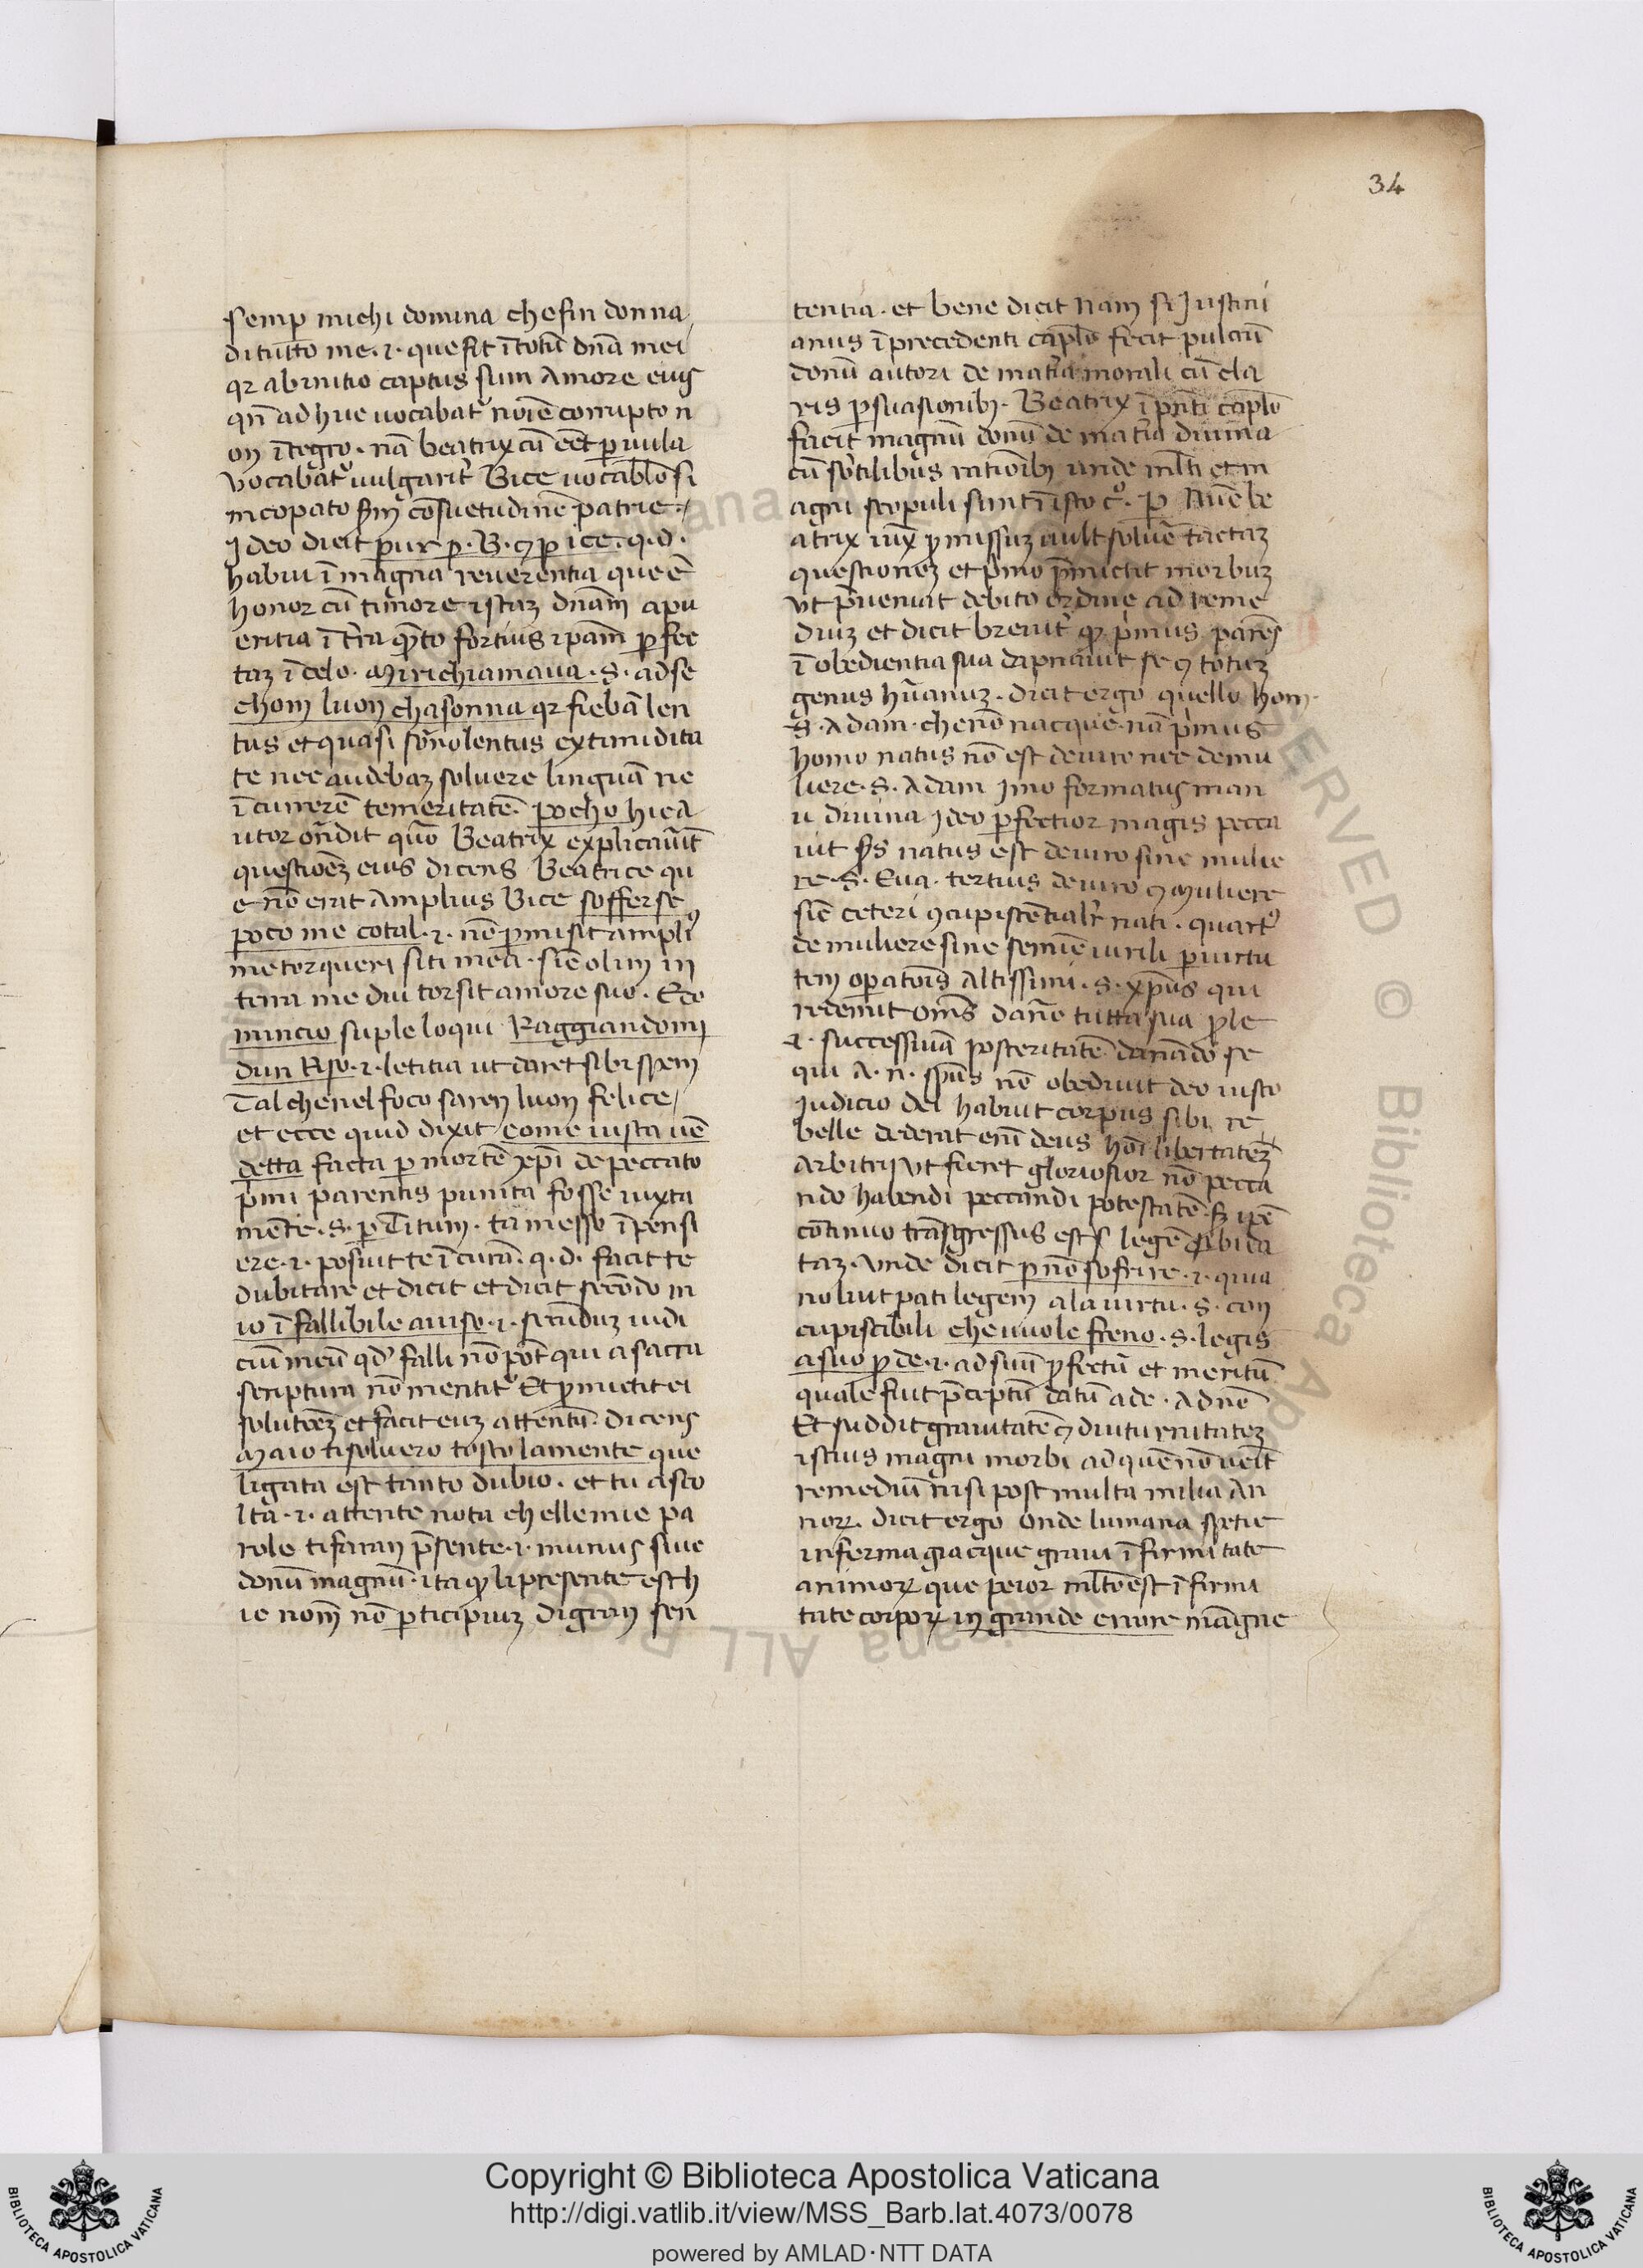 34
semp michi domina che sin donna
di tutto me. i. que fit ī totū dnā mei
qr ab initio captus sum Amore eius
qn̄ ad huc uocabat᷑ noīe corrupto n
on ītegro. nā beatrix cū eēt paruula
vocabat᷑ uulgarit᷑ Bice uocablo si
ncopato scdm cōsuetudinē patrie.
Ideo dicit pur p. B. ⁊ p ice. q. d.
habui ī magna reuerentia que ē
honor cū timore istaz dnam apu
eritia ī tra qnto fortius ipam perfec
taz ī celo. Mi richiamaua. S. ad se
chom luon chasonna qr fiebā len
tus et quasi somnolentus ex timidita
te nec audebaz soluere linguā ne
ī currerē temeritatē. pocho hic A
utor ondit quō Beatrix explicauit
questioēz eius dicens Beatrice qu
e nō erit Amplius Bice sofferse
poco me cotal. i. nō pmisit ampliꝰ
me torqueri siti mea. sic olim in
terra me diu torsit amore suo. E co
mincio suple loqui Raggiandomi
dun Riso. i. letitia ut daret sibi spem
Tal che nel foco saren luon felice
et ecce quid dixit come iusta uē
detta facta p mortē xpi de peccato
pmi parentis punita fosse iuxta
mente. S. p Titum. ta messo ī pensi
ere. i. posuit te ī curā. q. d. facit te
dubitare et dicit et dicit secōdo m
io ī fallibile auiso. i. secunduz iudi
ciū meū qd falli nō pōt qui a sacra
scriptura nō mentit᷑ Et pmictit ei
solutōēz et facit euz attentū. dicens
Ma io ti soluero tosto lamente que
ligata est tanto dubio. et tu asco
lta. i. attente nota chelle mie pa
role ti faran psente. i. munus siue
donū magnū. ita qp li presente est h
ic nom̄ nō pticipiuz di gran sen
tentia. et bene dicit Nam si Justini
anus ī precedenti caplo fecit pulcrū
donū autori de materia morali cū cla
ris psuasionibꝫ. Beatrix ī pnti caplo
facit magnū donū de materia diuina
cū subtilibus rationibꝫ unde mlti et m
agni scopuli sunt ī isto c. p Nunc be
atrix iuxta pmissuz uult soluē tactaz
questionez et pmo pmictit morbuz
ut pueniat debito ordine ad reme
diuz et dicit breuit᷑ qp primus parēs
ī obedientia sua dapnauit se ⁊ totuz
genus hūanuz. dicit ergo quello hom.
S. Adam. che nō nacque. nā pmus
homo natus nō est de uiro nec de mu
liere. S. Adam ymo formatus man
u diuina Ideo pfectior magis pecca
uit scds natus est de uiro sine mulie
re. S. Eua. tertius de uiro ⁊ muliere
sic ceteri ɔcupiscētialr nati. quartꝰ
de muliere sine semīe uirili p uirtu
tem operatōis Altissimi. S. xpus qui
redemit omēs danno tutta sua ple
i. successiuā posteritatē danādo se
qui A. n. spūs nō obediuit deo iusto
Iudicio dei habuit corpus sibi re
belle dederat enī deus hoī libertatez
Arbitrii ut fieret gloriosior nō pecca
ndo habendi peccandi potestatē. s ipē
continuo transgressus est s legē phibita
taz. Unde dicit p nō sofrire. i. quia
noluit pati legem a la uirtu. S. con
cupiscibili che uuole freno. S. legis
a suo p de. i. ad suū pfectū et meritū
quale fuit pceptū datū ade. A d nē
Et suddit grauitatē ⁊ diuturnitatez
istius magni morbi ad quē nō uēit
remediū nisi post multa milia An
norꝝ. dicit ergo Onde lumana spetie
inferma giacque graui ī firmitate
animorꝝ que peior mltō est ī firmi
tate corporꝝ in grande errore magne
Copyright © Biblioteca Apostolica Vaticana
http://digi.vatlib.it/view/MSS_Barb.lat.4073/0078
powered by AMLAD·NTT DATA
BIBLIOTECA APOSTOLICA VATICANA
BIBLIOTECA APOSTOLICA VATICANA